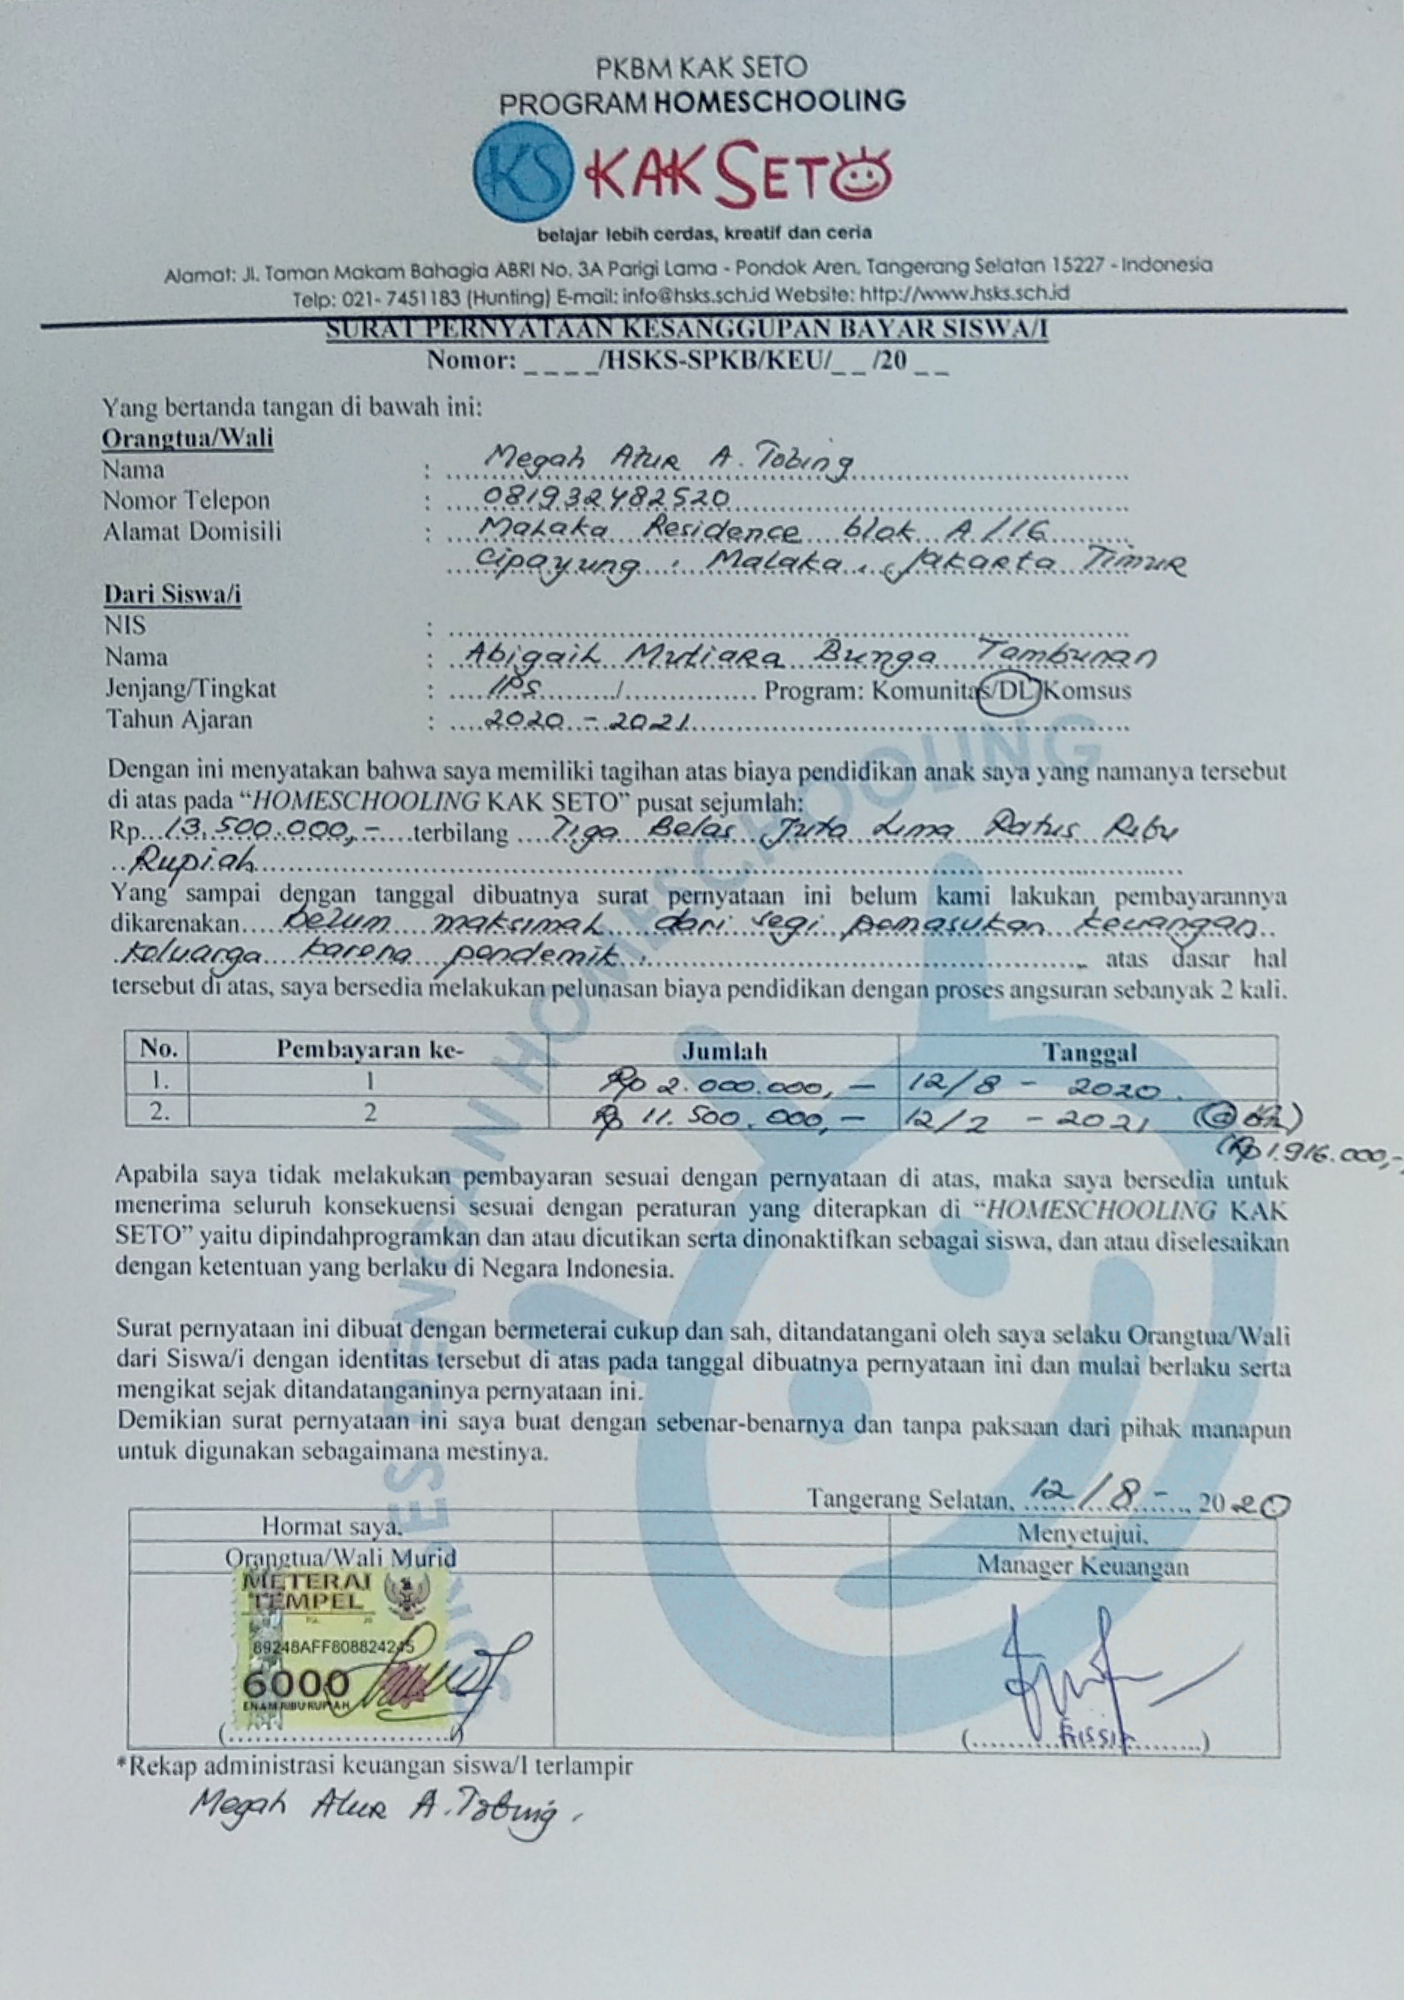 PKBM KAK SETO
PROGRAM HOMESCHOOLING
KS KAK SETO
belajar lebih cerdas, kreatif dan ceria
Alamat: Jl. Taman Makam Bahagia ABRI No. 3A Parigi Lama - Pondok Aren, Tangerang Selatan 15227 - Indonesia
Telp: 021- 7451183 (Hunting) E-mail: info@hsks.sch.id Website: http://www.hsks.sch.id
SURAT PERNYATAAN KESANGGUPAN BAYAR SISWA/I
Nomor: _ _ _ _/HSKS-SPKB/KEU/_ _ /20 _ _
Yang bertanda tangan di bawah ini:
Orangtua/Wali
Nama : Megah Atur A. Tobing
Nomor Telepon : 081932482520
Alamat Domisili : Malaka Residence blok A/16
Cipayung, Malaka, Jakarta Timur
Dari Siswa/i
NIS :
Nama : Abigail Mutiara Bunga Tambunan
Jenjang/Tingkat : IPS / Program: Komunitas/DL/Komsus
Tahun Ajaran : 2020 - 2021
Dengan ini menyatakan bahwa saya memiliki tagihan atas biaya pendidikan anak saya yang namanya tersebut
di atas pada “HOMESCHOOLING KAK SETO” pusat sejumlah:
Rp. 13.500.000,- terbilang Tiga Belas Juta Lima Ratus Ribu
Rupiah
Yang sampai dengan tanggal dibuatnya surat pernyataan ini belum kami lakukan pembayarannya
dikarenakan belum maksimal dari segi pemasukan keuangan
keluarga karena pandemik, atas dasar hal
tersebut di atas, saya bersedia melakukan pelunasan biaya pendidikan dengan proses angsuran sebanyak 2 kali.
No. Pembayaran ke- Jumlah Tanggal
1. 1 Rp 2.000.000,- 12/8 - 2020
2. 2 Rp 11.500.000,- 12/2 - 2021
(Rp 1.916.000,-
Apabila saya tidak melakukan pembayaran sesuai dengan pernyataan di atas, maka saya bersedia untuk
menerima seluruh konsekuensi sesuai dengan peraturan yang diterapkan di “HOMESCHOOLING KAK
SETO” yaitu dipindahprogramkan dan atau dicutikan serta dinonaktifkan sebagai siswa, dan atau diselesaikan
dengan ketentuan yang berlaku di Negara Indonesia.
Surat pernyataan ini dibuat dengan bermeterai cukup dan sah, ditandatangani oleh saya selaku Orangtua/Wali
dari Siswa/i dengan identitas tersebut di atas pada tanggal dibuatnya pernyataan ini dan mulai berlaku serta
mengikat sejak ditandatanganinya pernyataan ini.
Demikian surat pernyataan ini saya buat dengan sebenar-benarnya dan tanpa paksaan dari pihak manapun
untuk digunakan sebagaimana mestinya.
Tangerang Selatan, 12/8 -, 2020
Hormat saya, Menyetujui,
Orangtua/Wali Murid Manager Keuangan
METERAI
TEMPEL
89248AFF808824245
6000
ENAM RIBU RUPIAH
*Rekap administrasi keuangan siswa/I terlampir
Megah Atur A. Tobing.